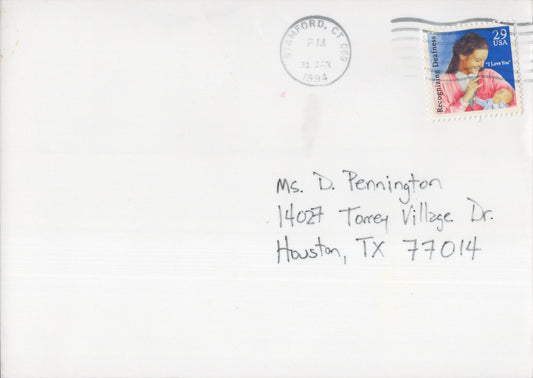 STAMFORD, CT 069
PM
31 JAN
1994
29
USA
Recognizing Deafness
"I Love You"
Ms. D. Pennington
14027 Torrey Village Dr.
Houston, TX 77014